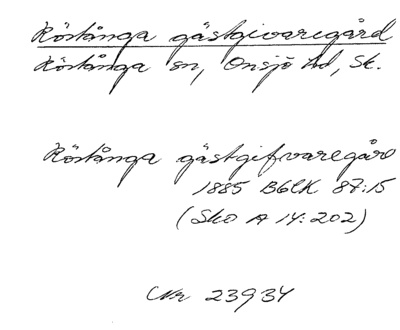 Röstånga gästgivaregård
Röstånga sn, Onsjö hd, Sk.
Röstånga gästgifvaregård
1885 BGLK 87:15
(Sko A 14:202)
Nr 23934